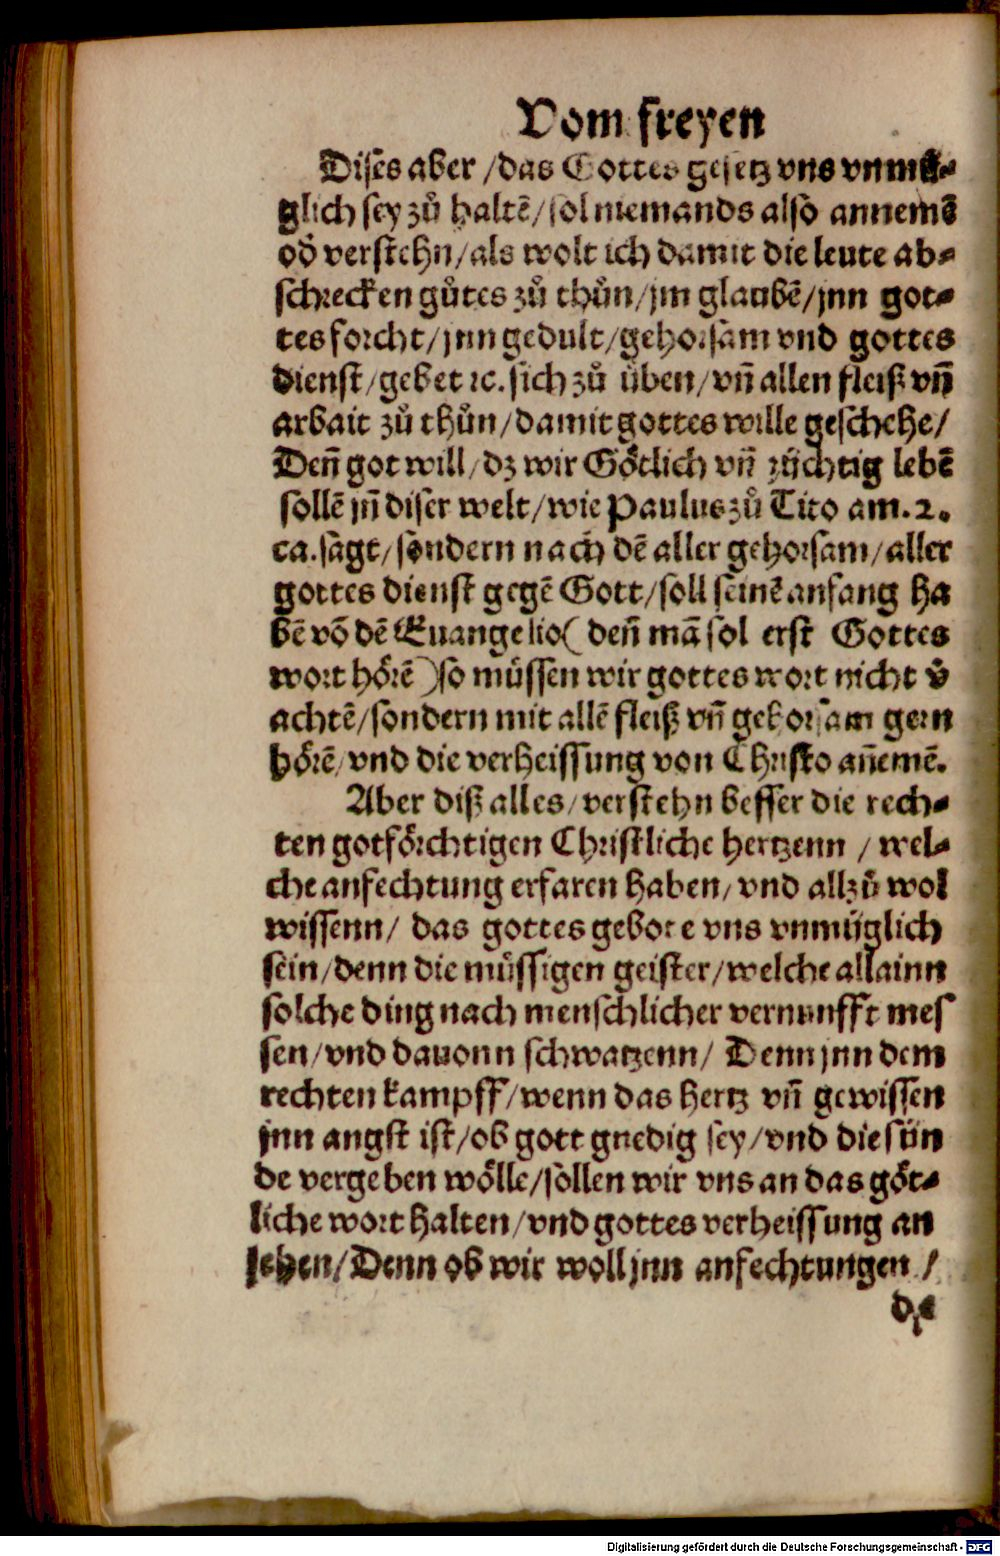 Vom freyen
Dises aber /das Gottes gesetz vns vnmü⸗
glich sey zů haltē/sol niemands also annemē
od̓ verstehn/als wolt ich damit die leute ab⸗
schrecken gůtes zů thůn/jm glaubē/jnn got⸗
tes forcht/jnn gedult/gehorsam vnd gottes
dienst/gebet ꝛc. sich zů üben/vñ allen fleiß vñ
arbait zů thůn/damit gottes wille geschehe/
Deñ got will/dz wir Götlich vñ züchtig lebē
sollē jñ diser welt/wie Paulus zů Tito am.2.
ca.sagt/sondern nach dē aller gehorsam/aller
gottes dienst gegē Gott/soll seinē anfang ha
bē võ dē Euangelio( deñ mã sol erst Gottes
wort hörē )so müssen wir gottes wort nicht v̓
achtē/sondern mit allē fleiß vñ gehorsam gern
hörē/vnd die verheissung von Christo añemē.
Aber diß alles/verstehn besser die rech⸗
ten gotförchtigen Christliche hertzenn / wel⸗
che anfechtung erfaren haben/vnd allzů wol
wissenn/ das gottes gebote vns vnmüglich
sein/denn die müssigen geister/welche allainn
solche ding nach menschlicher vernunfft mes
sen/vnd dauonn schwatzenn/ Denn jnn dem
rechten kampff/wenn das hertz vñ gewissen
jnn angst ist/ob gott gnedig sey/vnd die sün
de vergeben wölle/sollen wir vns an das göt⸗
liche wort halten/vnd gottes verheissung an
sehen/Denn ob wir woll jnn anfechtungen /
die
Digitalisierung gefördert durch die Deutsche Forschungsgemeinschaft - DFG